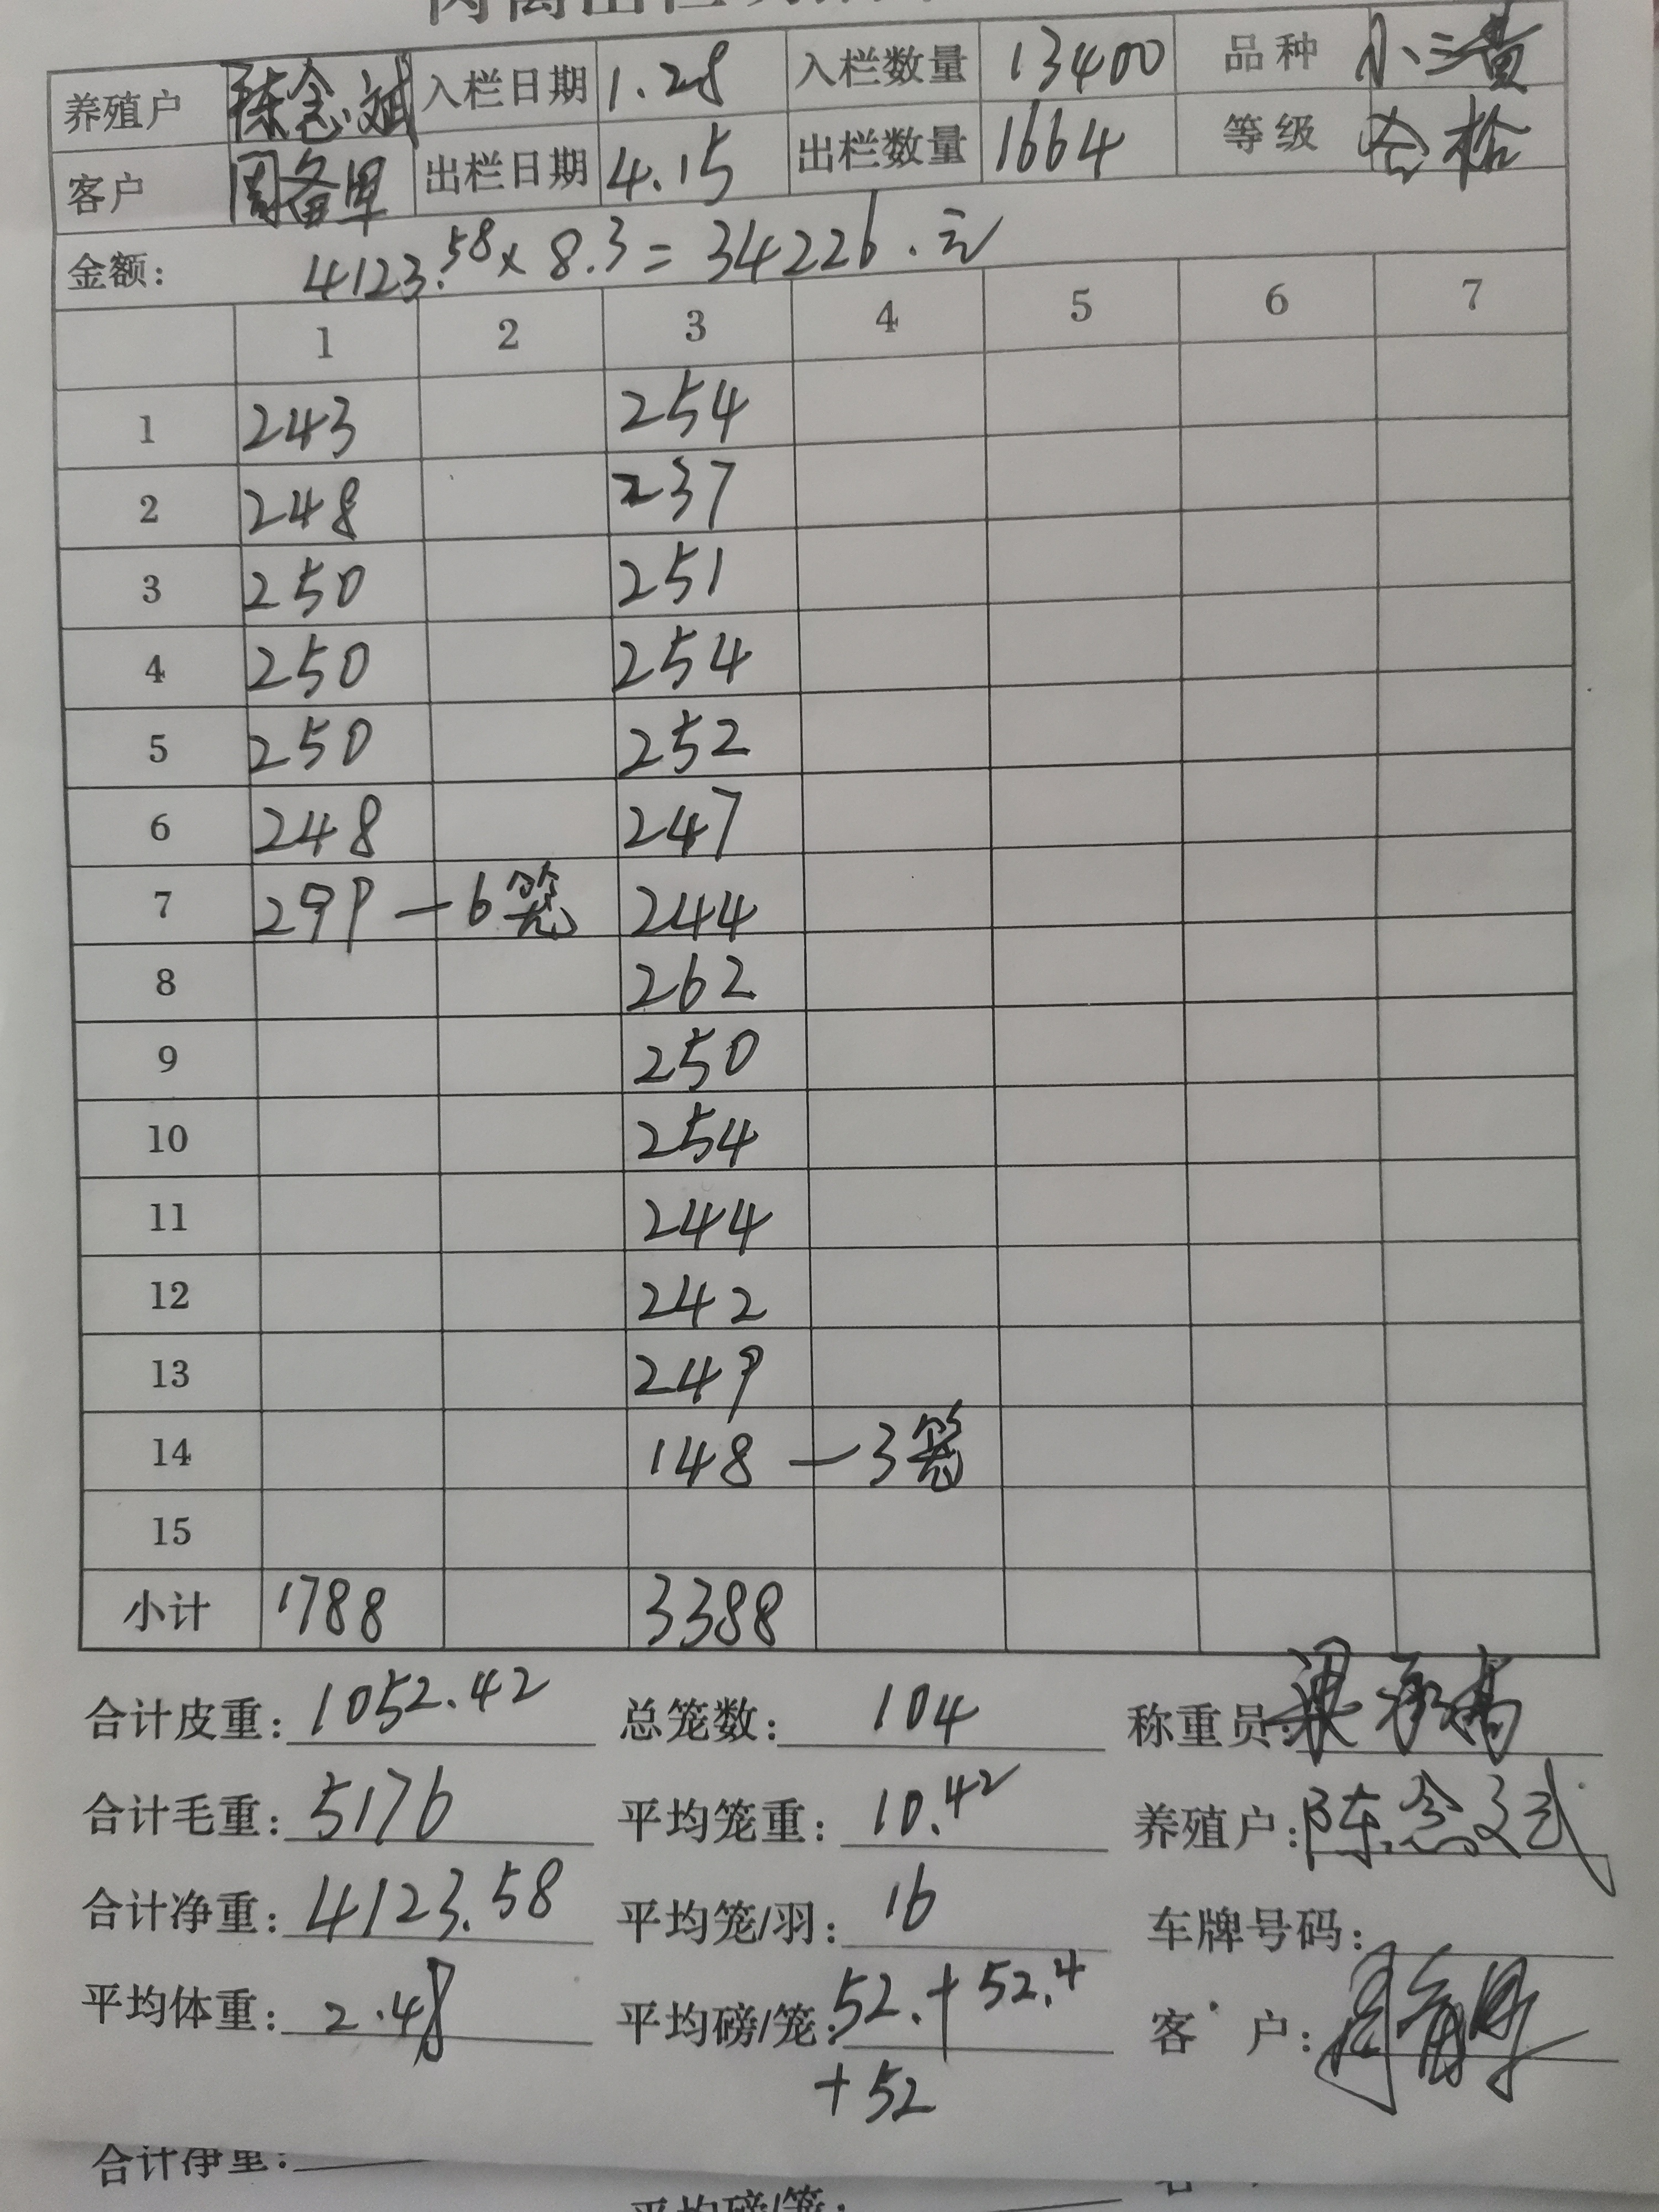 养殖户 陈念斌 入栏日期 1.28 入栏数量 13400 品种 小三黄
客户 出栏日期 4.15 出栏数量 1664 等级 合格
金额: 4123.58 x 8.3 = 34226.元
1 2 3 4 5 6 7
1 243 254
2 248 237
3 250 251
4 250 254
5 250 252
6 248 247
7 299 — 6笼 244
8 262
9 250
10 254
11 244
12 242
13 249
14 148 — 3笼
15
小计 1788 3388
合计皮重: 1052.42 总笼数: 104 称重员:
合计毛重: 5176 平均笼重: 10.42 养殖户: 陈念斌
合计净重: 4123.58 平均笼/羽: 16 车牌号码:
平均体重: 2.48 平均磅/笼: 52.+52.4 客户:
+52